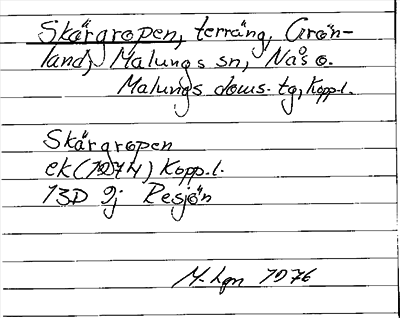 Skärgropen, terräng, Grön-
land, Malungs sn, Nås o.
Malungs doms. tg, Kopp.l.
Skärgropen
ek (1974) Kopp.l.
13D 9j Resjön
M-hgn 1976